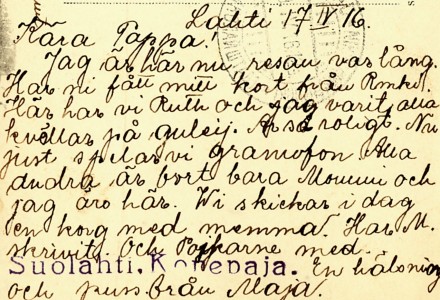 Lahti 17 IV 16.
Kära Pappa!
Jag är här nu resan var lång.
Har ni fått mitt kort från Rmki.
Här har vi Ruth och jag varit alla
kvällar på guleij. Så roligt. Nu
just spelar vi gramofon Alla
andra är bort bara Mommi och
jag äro här. Vi skickar i dag
en korg med memma. Har M.
skrivit och Pojkarne med.
Suolahti, Konepaja. En hälsning
och puss från Maja.